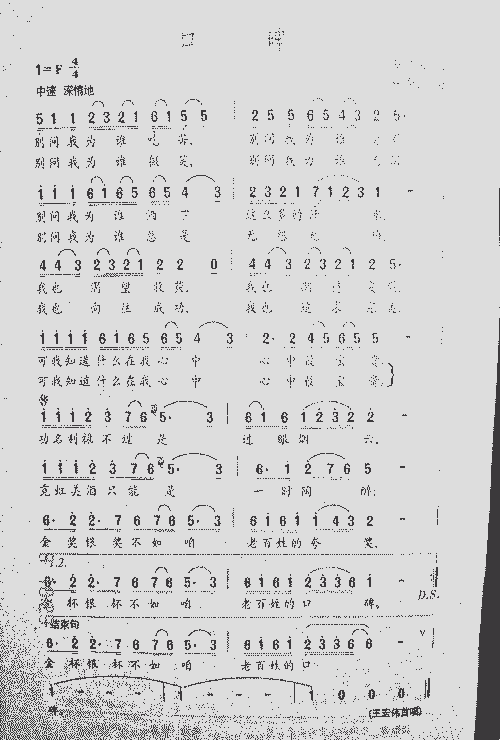 口 碑
1=F 4/4
中速 深情地
5 1 1 2 3 2 1 6 1 5 5 2 5 5 6 5 4 3 2 5·
别问我为谁吃苦, 别问我为谁
别问我为谁微笑, 别问我为谁
1 1 1 6 1 6 5 6 5 4 3 2 3 2 1 7 1 2 3 1 -
别问我为谁洒下 这么多的汗
别问我为谁总是 无怨无
4 4 3 2 3 2 1 2 2 0 4 4 3 2 3 2 1 2 5·
我也渴望收获, 我也
我也向往成功, 我也追求
1 1 1 1 6 1 6 5 6 5 4 3 2· 2 4 5 6 5 5 -
可我知道什么在我心中 心中最宝贵
可我知道什么在我心中 心中最宝贵
1 1 1 2 3 7 6 5· 3 6 1 6 1 2 3 2 2 -
功名利禄不过是 过眼烟云,
1 1 1 2 3 7 6 5· 3 6· 1 2 7 6 5 -
霓虹美酒只能是 一时陶醉;
6· 2 2· 7 6 7 6 5· 3 6 1 6 1 1 4 3 2 -
金奖银奖不如咱 老百姓的夸奖,
1.2.
6· 2 2· 7 6 7 6 5· 3 6 1 6 1 2 3 3 6 1 -
金杯银杯不如咱 老百姓的口碑。
D.S.
结束句
6· 2 2· 7 6 7 6 5· 3 6 1 6 1 2 3 3 6 6 -
金杯银杯不如咱 老百姓的口
1 - - - 1 - - - 1 0 0 0
碑。
(王宏伟首唱)